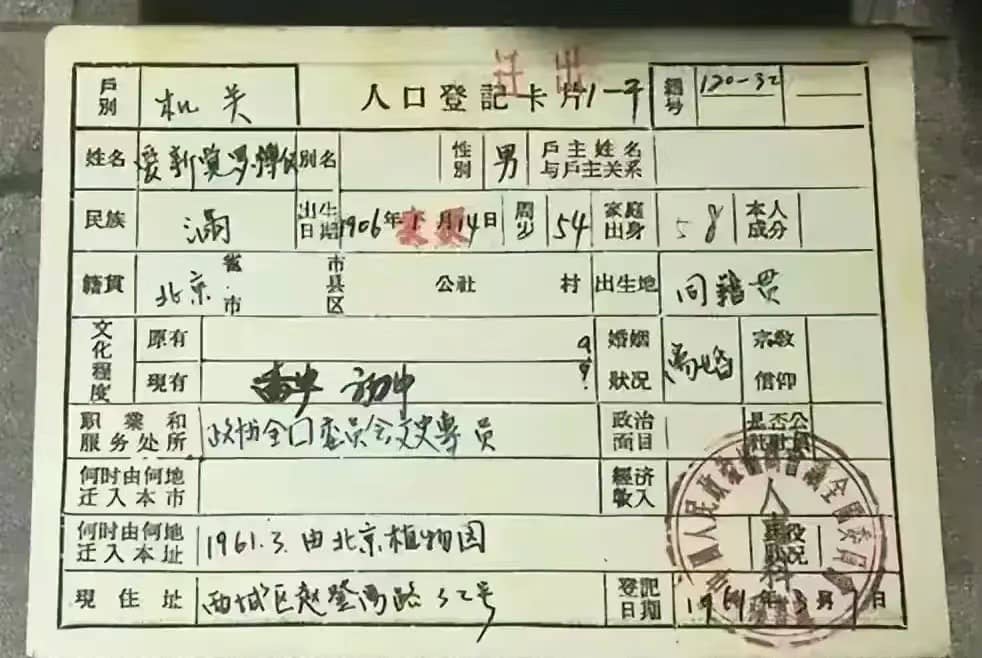 迁出
戶別 机关 人口登記卡片1-子 編号 120-32
姓名 爱新觉罗溥仪 別名 性別 男 戶主姓名与戶主关系
民族 满 出生日期 1906年 月14日 周岁 54 家庭出身 58 本人成分
变更
籍貫 北京 省市 市县区 公社 村 出生地 同籍贯
文化程度 原有 婚姻狀况 离婚 宗教信仰
現有 高中 初中
职業和服务处所 政协全囗委员会文史專员 政治面目 是否公社社員
何时由何地迁入本市 經济收入
何时由何地迁入本址 1961.3.由北京植物园
現住址 西城区赵登禹路32号 登記日期 1961年3月 日
人事科